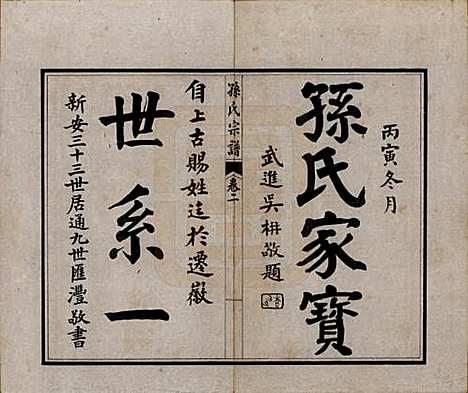 丙寅冬月
孫氏家寶
武進吳枏敬題
孫氏宗譜
卷二
自上古賜姓迄於遷徽
世系一
新安三十三世居通九世匯灃敬書